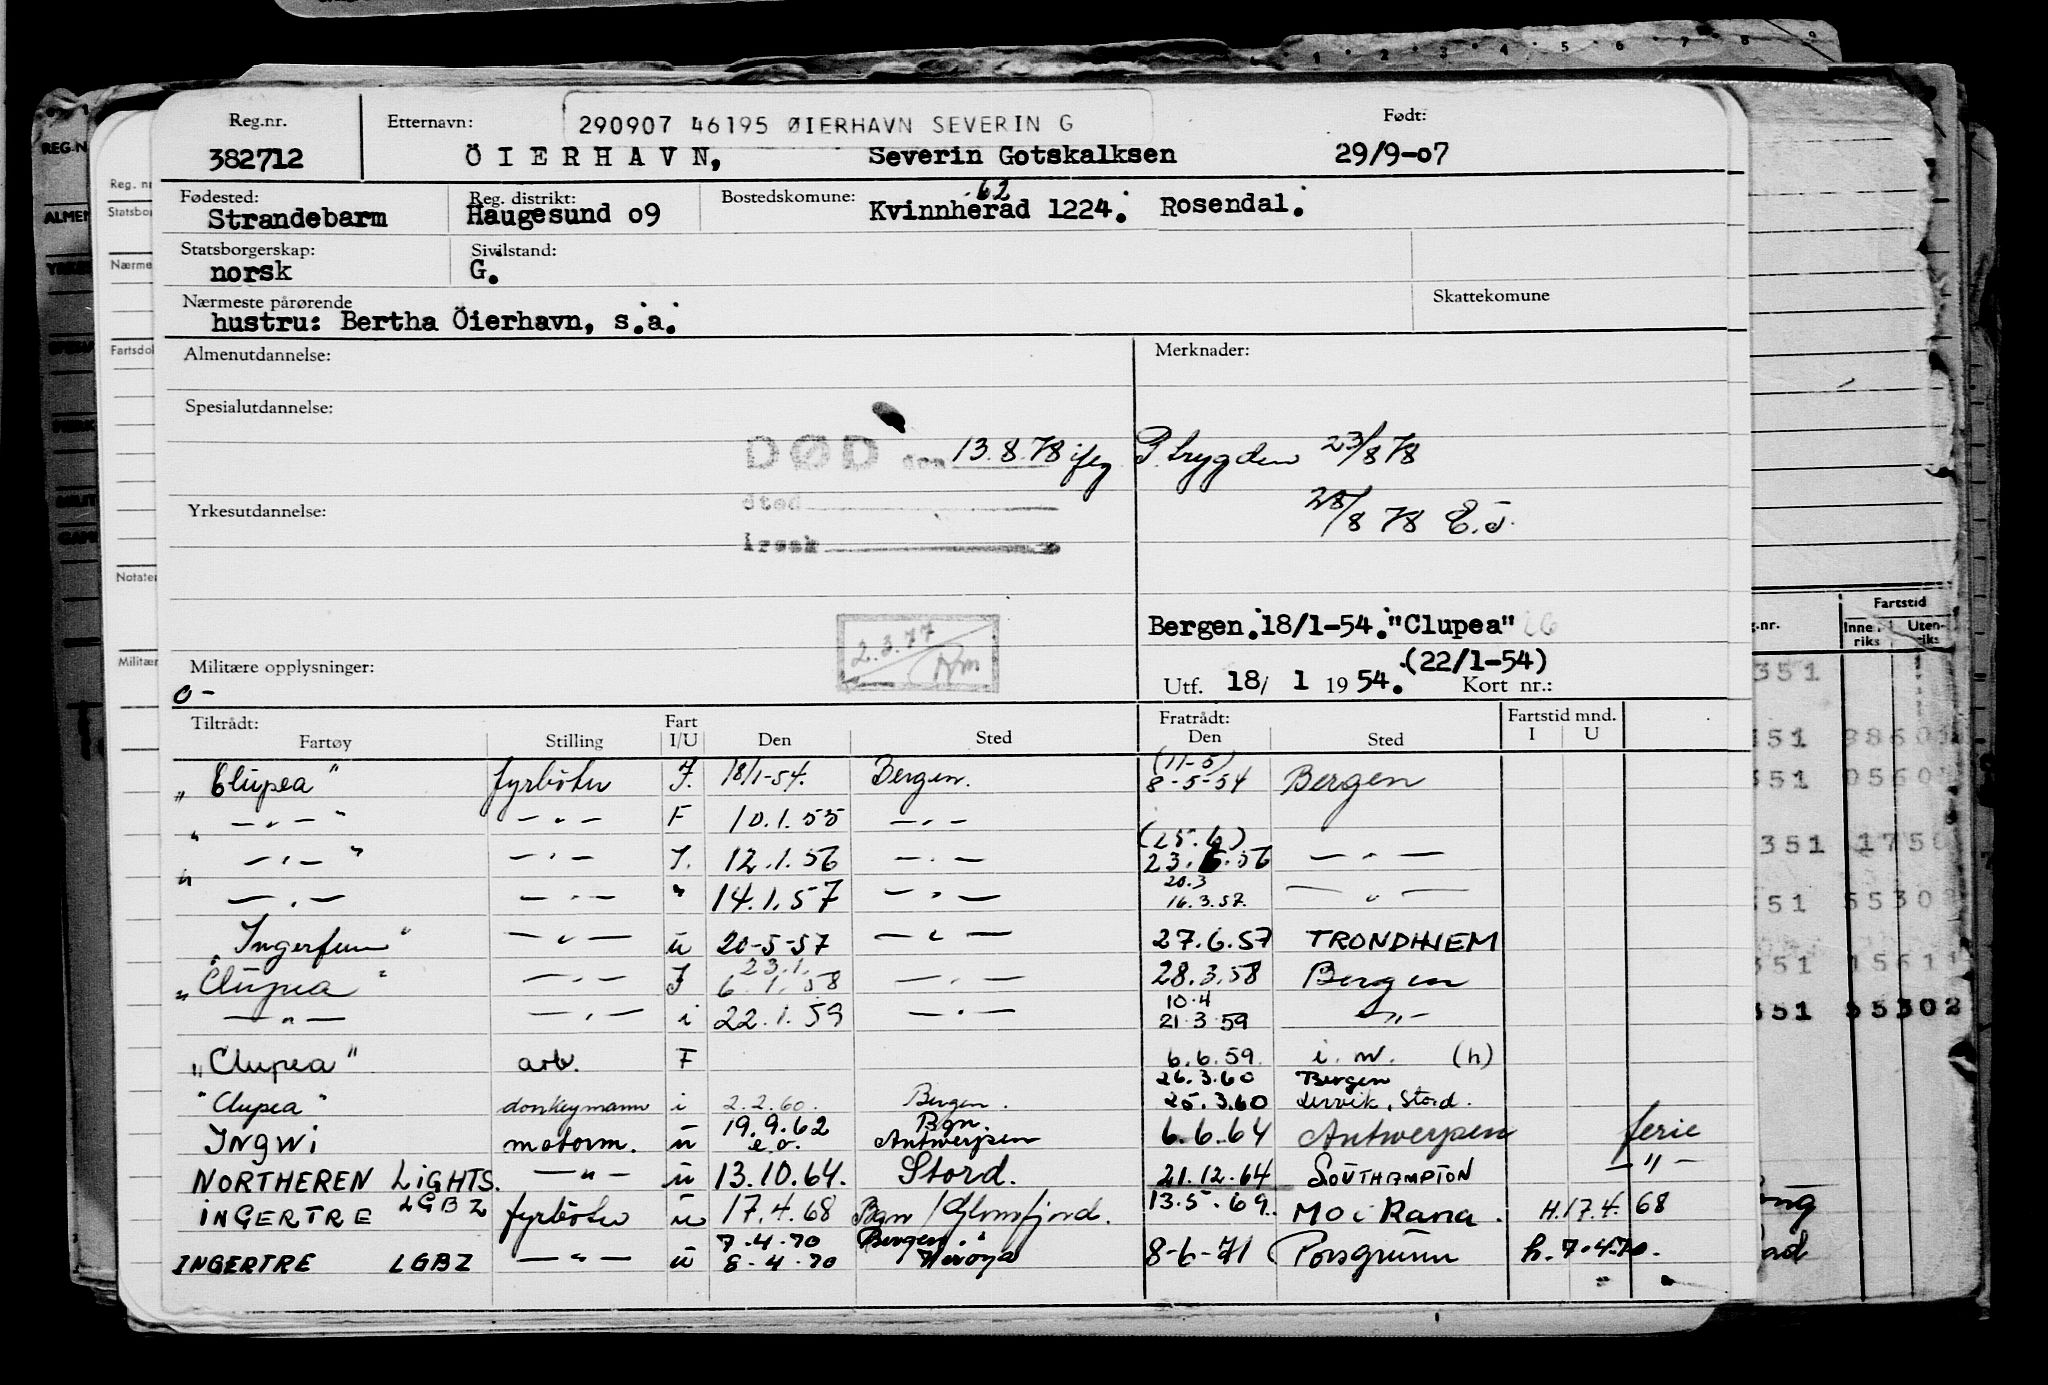 Reg.nr. Etternavn: 290907 46195 ØIERHAVN SEVERIN G Født:
382712 ÖIERHAVN, Severin Gotskalksen 29/9-07
Fødested: Reg. distrikt: Bostedskomune: 62
Strandebarm Haugesund 09 Kvinnherad 1224. Rosendal.
Statsborgerskap: Sivilstand:
norsk G.
Nærmeste pårørende Skattekomune
hustru: Bertha Öierhavn, s.a.
Almenutdannelse: Merknader:
Spesialutdannelse:
DØD den 13.8.78 iflg P. trygden 23/8 78
sted
28/8 78 E.J.
Yrkesutdannelse:
årsak
Bergen.18/1-54."Clupea"
2.3.77
Militære opplysninger: (22/1-54)
0- Utf. 18/ 1 1954. Kort nr.:
Tiltrådt: Fart Fratrådt: Fartstid mnd.
Fartøy Stilling I/U Den Sted Den Sted I U
(11-5)
"Clupea" fyrböter I. 18/1-54. Bergen. 8-5-54 Bergen
" — " — " — " — F 10.1.55 — " —
(25.6)
" — " — " — " — I. 12.1.56 — " — 23.6.56 — " —
20.3
— " — — " — " 14.1.57 — " — 16.3.57. — " —
"Ingerfem" — " — u 20-5-57 — " — 27.6.57 TRONDHJEM
23.1.
"Clupea" — " — I 6.1.58 — " — 28.3.58 Bergen
10.4
— " — — " — i 22.1.59 — " — 21.3.59 — " —
"Clupea" arb. F 6.6.59. i. m. (h)
26.3.60 Bergen
"Clupea" donkeymann i 2.2.60. Bergen. 25.3.60 Lervik, Stord.
19.9.62 Bgn.
INGWI motorm. u e.o. Antwerpen 6.6.64 Antwerpen ferie
NORTHEREN LIGHTS. — " — u 13.10.64. Stord. 21.12.64 SOUTHAMPTON — " —
INGERTRE LGBZ fyrböter u 17.4.68 Bgn/Glomfjord. 13.5.69. Mo i Rana. H.17.4.68
7.4.70 Bergen.
INGERTRE LGBZ — " — u 8.4.70 Heröya 8-6-71 Porsgrunn h.7.4.70.
Reg. nr
Statsbor
Nærme
Fartsdok
Notater
Militær
REG.N
ALMEN
Fartstid
g.nr. Innen-riks Uten-riks
351
351
351
351 1750
351 55302
351 15611
351 55302